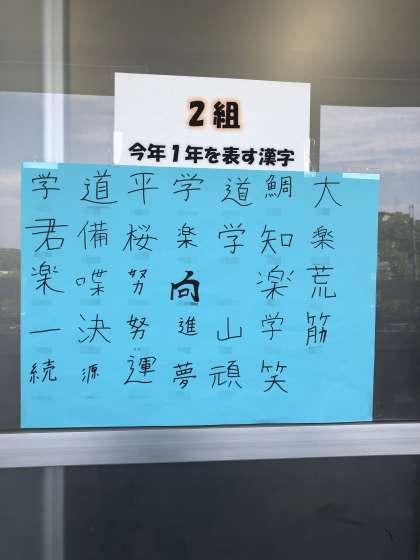 2組
今年1年を表す漢字
学 道 平 学 道 鯛 大
君 備 桜 楽 学 知 楽
楽 喋 努 向 楽 荒
一 決 努 進 山 学 筋
続 源 運 夢 頑 笑